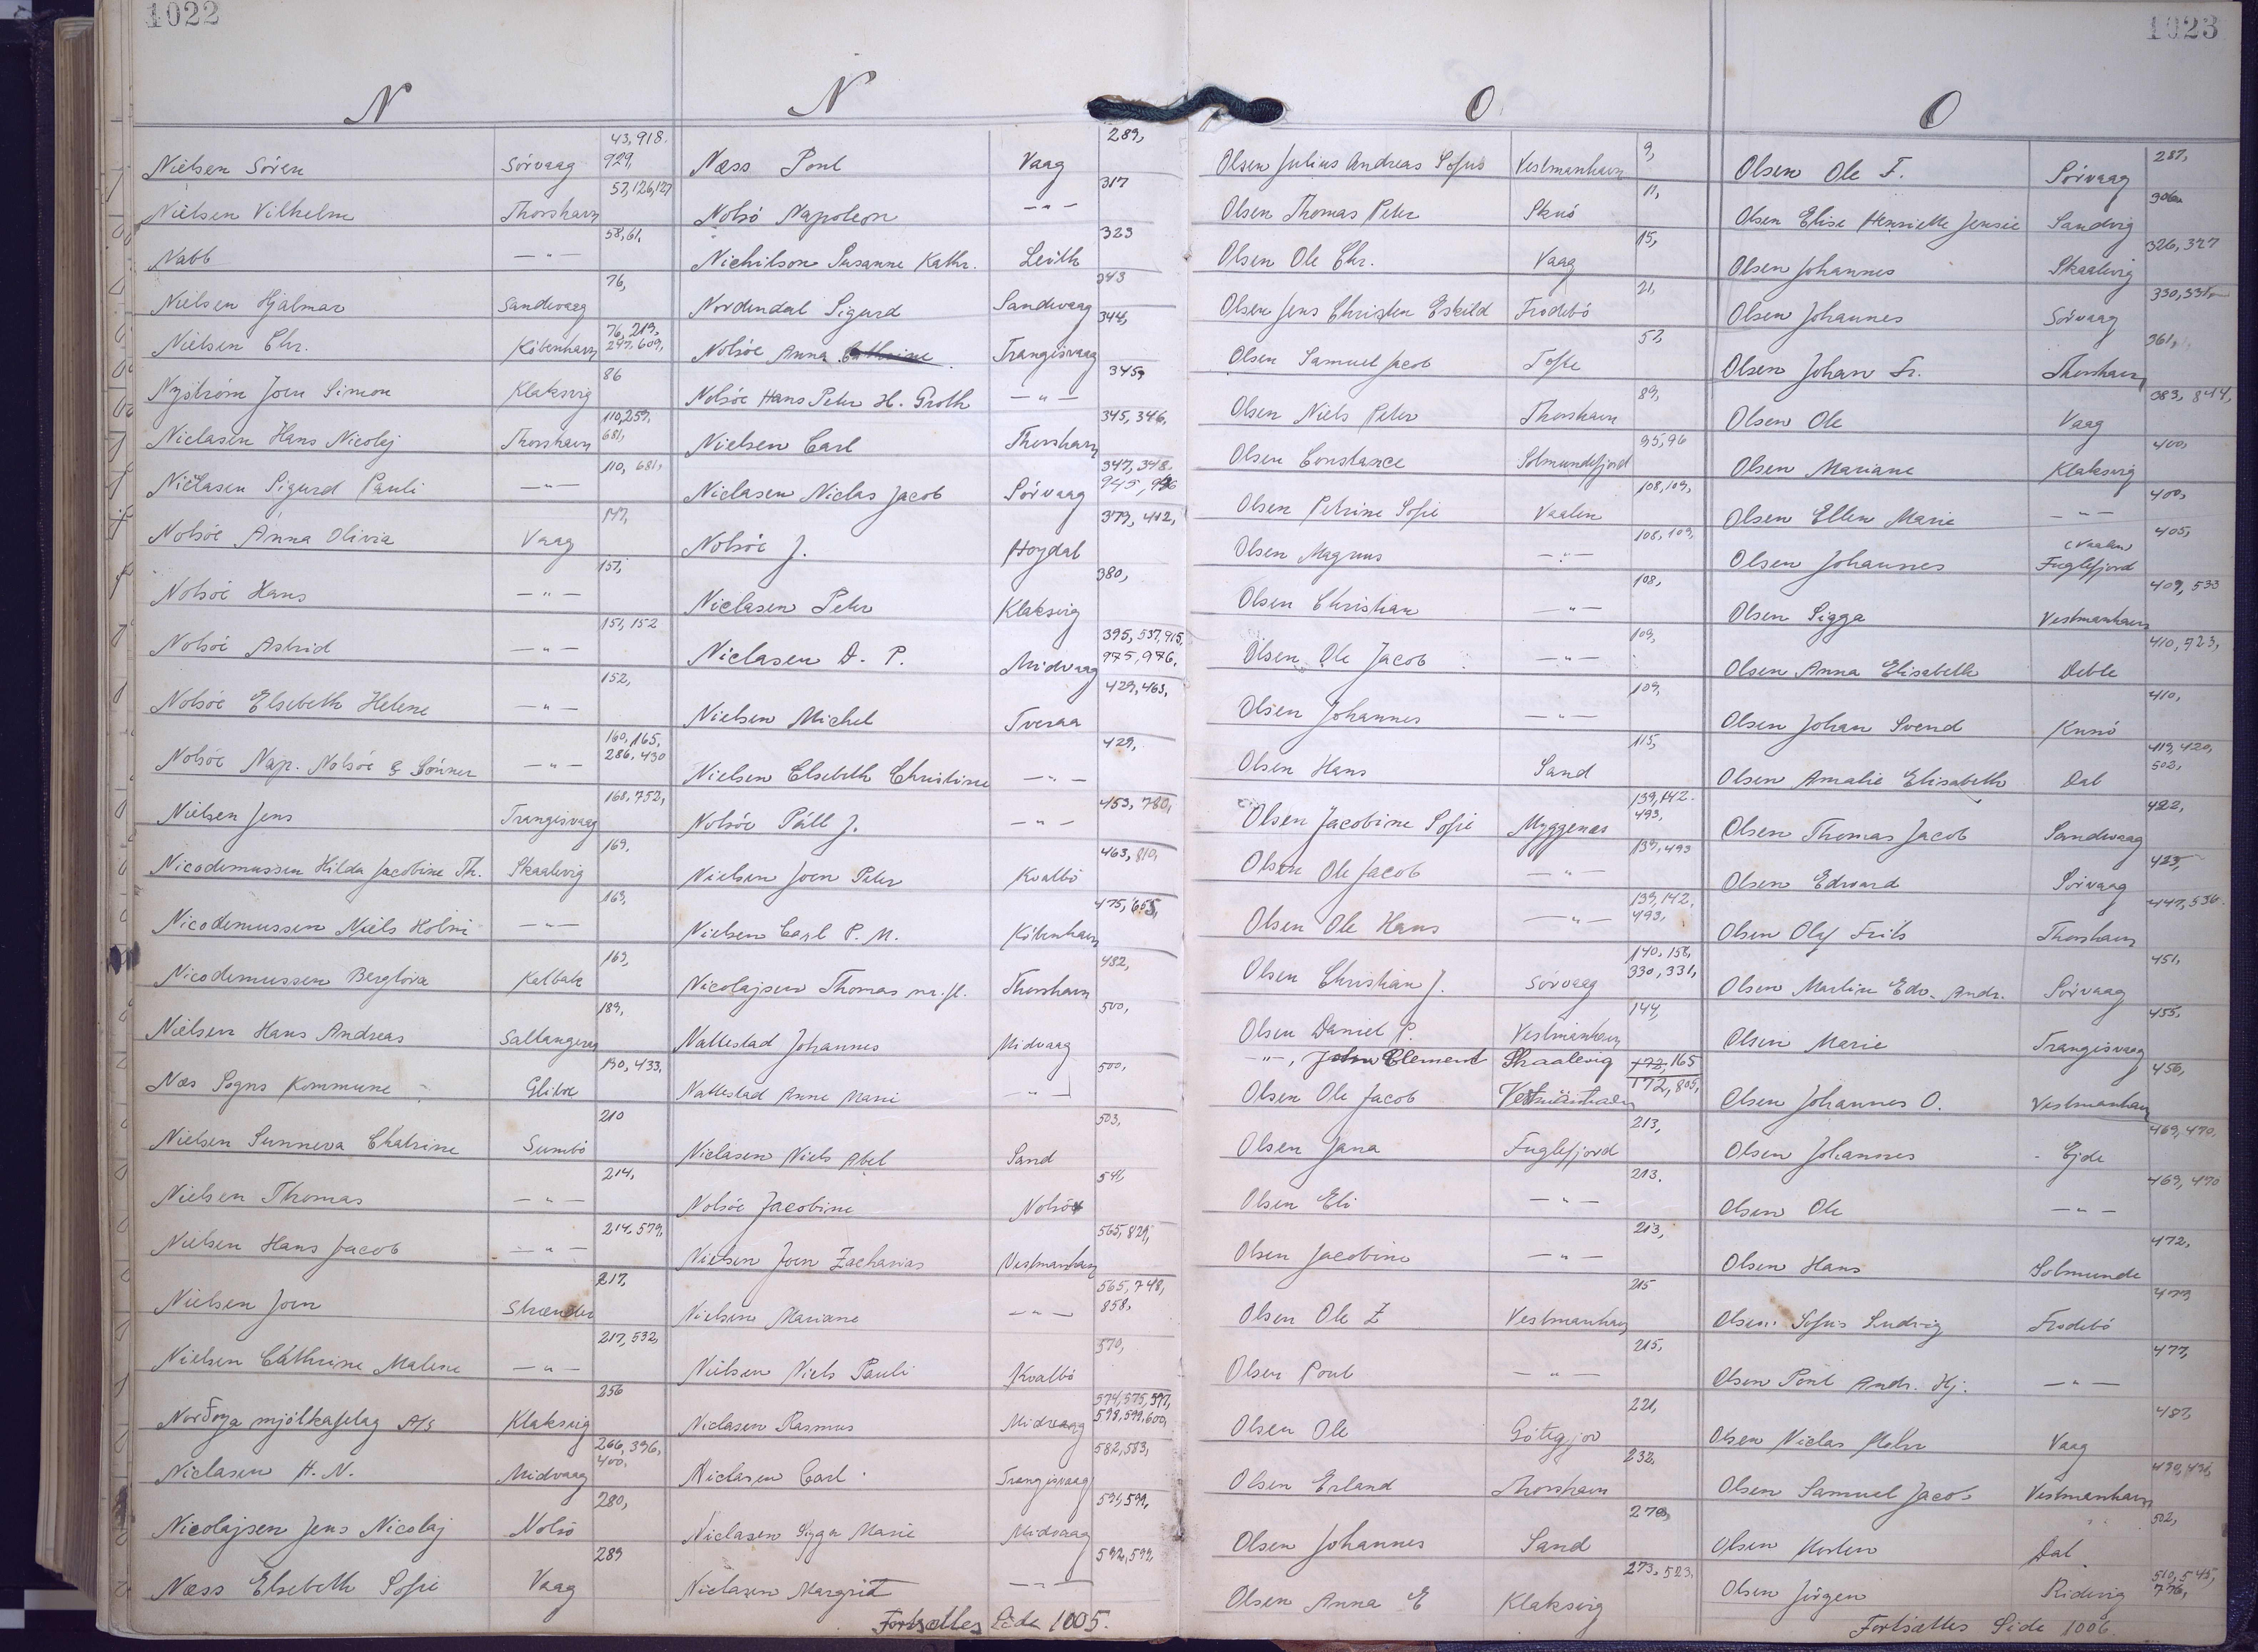 1022
N
Nielsen Sören Sörvaag 43, 918. 929,
Nielsen Vilhelm Thorshavn 57, 126, 127
Nabb —"— 58, 61,
Nielsen Hjalmar Sandevaag 76,
Nielsen Chr. Köbenhavn 76, 219, 297, 609,
Nyström Joen Simon Klaksvig 86
Niclasen Hans Nicolaj Thorshavn 110, 259, 681,
Niclasen Sigurd Pauli —"— 110, 681,
Nolsöe Anna Olivia Vaag 147,
Nolsöe Hans —"— 151,
Nolsöe Astrid —"— 151, 152
Nolsöe Elsebeth Helene —"— 152,
Nolsöe Nap. Nolsöe & Sönner —"— 160, 165, 286, 430
Nielsen Jens Trangisvaag 168, 752,
Nicodemussen Hilda Jacobine Th. Skaalevig 169,
Nicodemussen Niels Holm —"— 169,
Nicodemussen Bergliva Kalbak 169,
Nielsen Hans Andreas Saltangeraa 189,
Næs Sogns Kommune Glibre 190, 433,
Nielsen Sunneva Chatrine Sumbö 210
Nielsen Thomas —"— 214,
Nielsen Hans Jacob —"— 214, 579,
Nielsen Joen Strænder 217,
Nielsen Cathrine Malene —"— 217, 532,
Norðoya mjólkafelag A/S Klaksvig 256
Niclasen H. N. Midvaag 266, 396, 400,
Nicolajsen Jens Nicolaj Nolsö 280,
Næss Elsebeth Sofie Vaag 289
N
Næss Poul Vaag 289,
Nolsö Napoleon —"— 317
Nichilson Susanne Kathr. Leith 323
Nordendal Sigurd Sandevaag 343
Nolsöe Anna Cathrine Trangisvaag 344,
Nolsöe Hans Peter H. Groth —"— 345,
Nielsen Carl Thorshavn 345, 346,
Niclasen Niclas Jacob Sörvaag 347, 348. 945, 946
Nolsöe J. Hoydal 379, 412,
Niclasen Peter Klaksvig 380,
Niclasen D. P. Midvaag 395, 537, 915, 975, 976,
Nielsen Michel Tveraa 429, 463,
Nielsen Elsebeth Christine —"— 429,
Nolsöe Páll J. —"— 453, 780,
Nielsen Joen Peter Kvalbö 463, 810,
Nielsen Carl P. M. Köbenhavn 475, 655,
Nicolajsen Thomas m. fl. Thorshavn 482,
Nattestad Johannes Midvaag 500,
Nattestad Anne Marie —"— 500,
Niclasen Niels Abel Sand 503,
Nolsöe Jacobine Nolsö 541
Nielsen Joen Zacharias Vestmanhavn 565, 829,
Nielsen Mariane —"— 565, 748, 858,
Nielsen Niels Pauli Kvalbö 570,
Niclasen Rasmus Midvaag 574, 575, 597, 598, 599, 600,
Niclasen Carl Trangisvaag 582, 583,
Niclasen Sigga Marie Midvaag 591, 599,
Niclasen Margrit —"— 592, 599,
Fortsættes Side 1005.
1023
O
Olsen Julius Andreas Sofus Vestmanhavn 9,
Olsen Thomas Peter Skuö 11,
Olsen Ole Chr. Vaag 15,
Olsen Jens Christen Eskild Frodebö 21,
Olsen Samuel Jacob Tofte 57,
Olsen Niels Peter Thorshavn 89,
Olsen Constance Solmundefjord 95, 96
Olsen Petrine Sofie Vaalen 108, 109,
Olsen Magnus —"— 108, 109,
Olsen Christian —"— 108,
Olsen Ole Jacob —"— 109,
Olsen Johannes —"— 109,
Olsen Hans Sand 115,
Olsen Jacobine Sofie Myggenæs 139, 142. 493,
Olsen Ole Jacob —"— 139, 493
Olsen Ole Hans —"— 139, 142. 493,
Olsen Christian J. Sörvaag 140, 156, 330, 331,
Olsen Daniel P. Vestmanhavn 144,
—"—, John Clement Skaalevig 172, 165
Olsen Ole Jacob Vestmanhavn 172, 805,
Olsen Jana Fuglefjord 213,
Olsen Eli —"— 213.
Olsen Jacobine —"— 213,
Olsen Ole Z Vestmanhavn 215
Olsen Poul —"— 215,
Olsen Ole Götegjov 221,
Olsen Erland Thorshavn 232,
Olsen Johannes Sand 270,
Olsen Anna E Klaksvig 273, 523,
O
Olsen Ole F. Sörvaag 287,
Olsen Elise Henriette Jensie Sandvig
Olsen Johannes Skaalevig 326, 327
Olsen Johannes Sörvaag 330, 331,
Olsen Johan Fr. Thorshavn 361,
Olsen Ole Vaag 383, 844,
Olsen Mariane Klaksvig 400,
Olsen Ellen Marie —"— 400,
Olsen Johannes (Vaalen) Fuglefjord 405,
Olsen Sigga Vestmanhavn 409, 533
Olsen Anna Elisabeth Deble 410, 923,
Olsen Johan Svend Kunö 410,
Olsen Amalie Elisabeth Dal 419, 420, 502,
Olsen Thomas Jacob Sandevaag 422,
Olsen Edvard Sörvaag 423,
Olsen Olaf Frits Thorshavn 447, 536.
Olsen Martin Edv. Andr. Sörvaag 451,
Olsen Marie Trangisvaag 455,
Olsen Johannes O. Vestmanhavn 456,
Olsen Johannes Ejde 469, 470,
Olsen Ole —"— 469, 470
Olsen Hans Solmunde 472,
Olsen Sofus Ludvig Frodebö 473
Olsen Poul Andr. Hj. —"— 477,
Olsen Niclas Peter Vaag 487,
Olsen Samuel Jacob Vestmanhavn
Olsen Morten Dal 502,
Olsen Jörgen Ridevig 510, 545, 776,
Fortsættes Side 1006